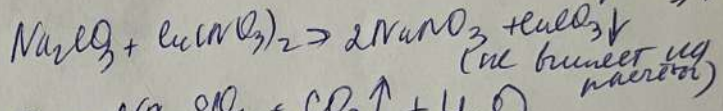 Na₂CO₃ + Cu(NO₃)₂ → 2NaNO₃ + CuCO₃↓
(не влияет на
CO₂↑ + H₂O